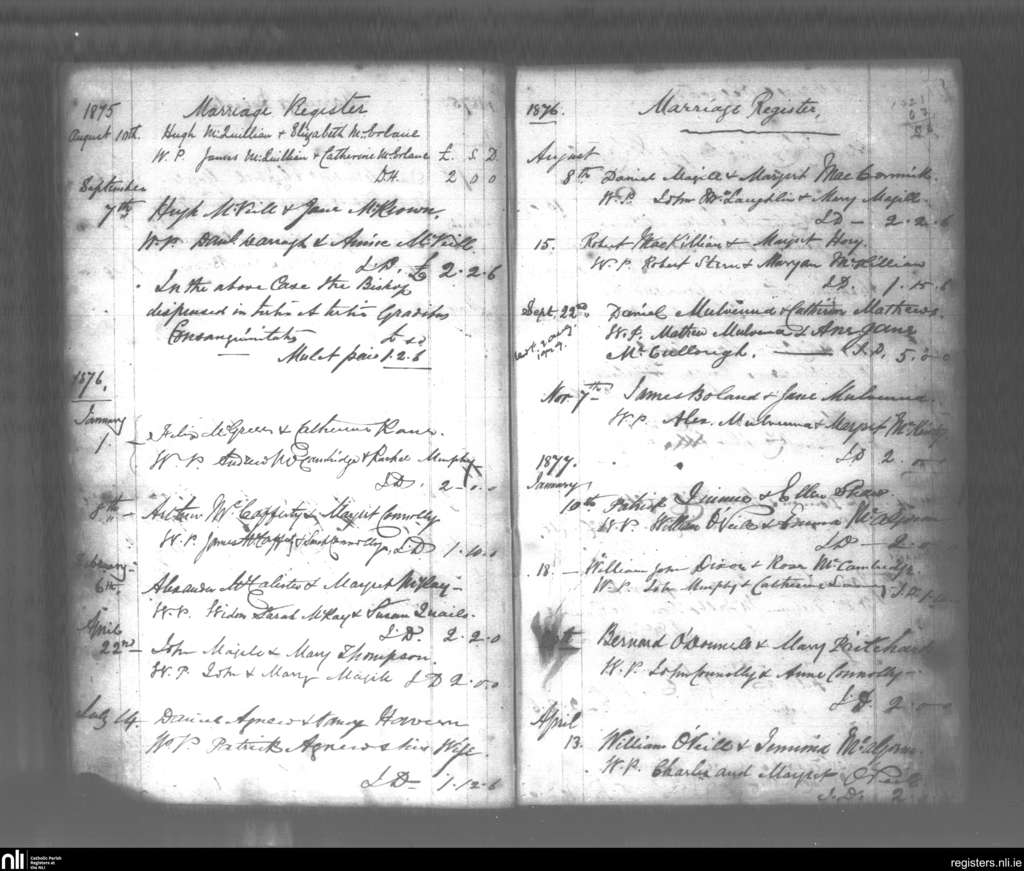 1875 Marriage Register
August 10th. Hugh McQuillian & Elizabeth McErlane
W. P. James McQuillian & Catherine McErlane £. S. D.
D.H. 2 0 0
September
7th Hugh McNeill & Jane McKeown.
W. P. Danl. Darragh & Annie McNeill
J. D. £ 2-2-6
In the above Case the Bishop
dispensed in tertio & tertio Gradibus
Consanguinitatis
Mulct paid 1.2.6
1876.
January
1. Felix McGreer & Catherine Kane.
W. P. Andrew McCambridge & Rachel Murphy
J D. 2-0-0
8th Arthur McCafferty & Margret Connolly
W. P. James McCafferty & Connolly. J D 1.10.0
February
6th. Alexander McCalister & Margret McKay
W. P. Widow Sarah McKay & Susan Quaile.
J. D. 2-2-0
April
22nd John Magill & Mary Thompson.
W. P. John & Mary Magill J D 2.0.0
July 14. Daniel Agnew & Havern
W. P. Patrick Agnew & his Wife
J D- 1.12.6
1876. Marriage Register,
August
8th Daniel Magill & Margert MacCormick.
W. P. John McLaughlin & Mary Magill.
J D - 2-2.6
15. Robert MacKillian & Margret Hory.
W. P. Robert & Maryan McKillian
J D. 1.15.6
Sept. 22nd. Daniel Mulvenna & Catherine Mathews.
W. P. Mathew Mulvenna & Ann Jane
McCullough. J. D. 5.0-0
Nov 7th James Boland & Jane Mulvenna.
W. P. Alex. Mulvenna & Margret
J D 2.
1877.
January
10th Patrick & Ellen Shaw
W. P. William O'Neill & Emma McAlgorm
J D - 2-0
18. William John Dixon & Rose McCambridge.
W. P. John Murphy & Catherine J. D. 1-
Bernard O'Donnell & Mary Pritchard
W. P. John Connolly & Anne Connolly
J D. 2-0-0
April
13. William O'Neill & Jemima McAlgorm.
W. P. Charles and Margret O'Neill
J. D. 2
nli Catholic Parish
Registers at
the NLI
registers.nli.ie